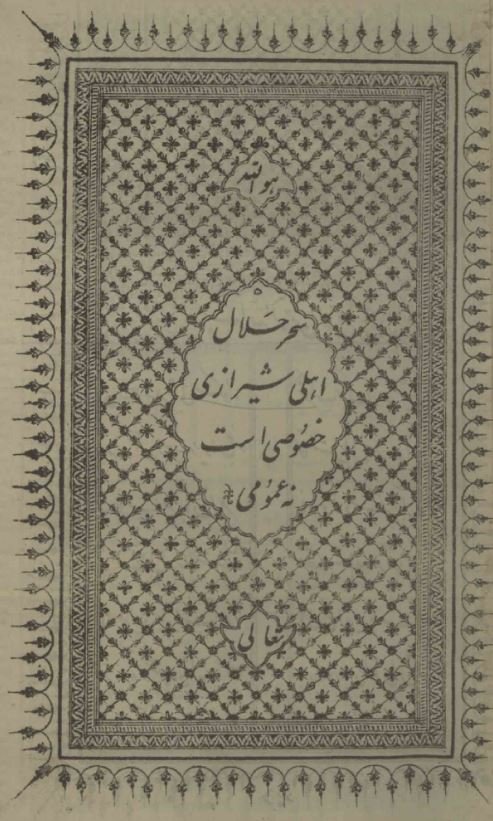 هو الله
سحر حلال
اهلی شیرازی
خصوصی است
نه عمومی
تعالی